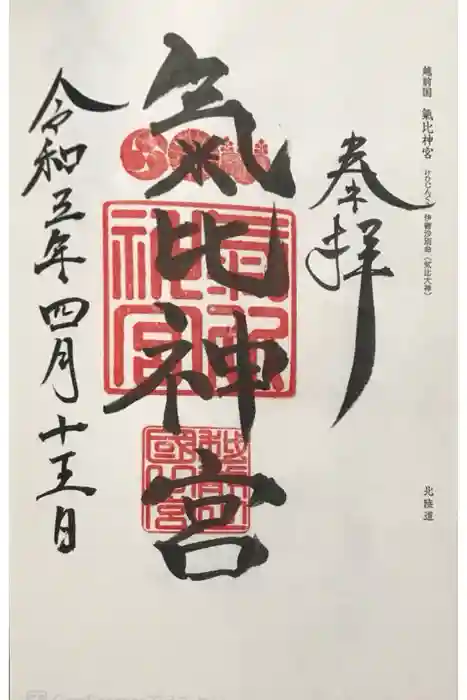 越前国 氣比神宮 けひじんぐう 伊奢沙別命（気比大神）
北陸道
奉拝
氣比神宮
氣比神宮
令和五年四月十五日